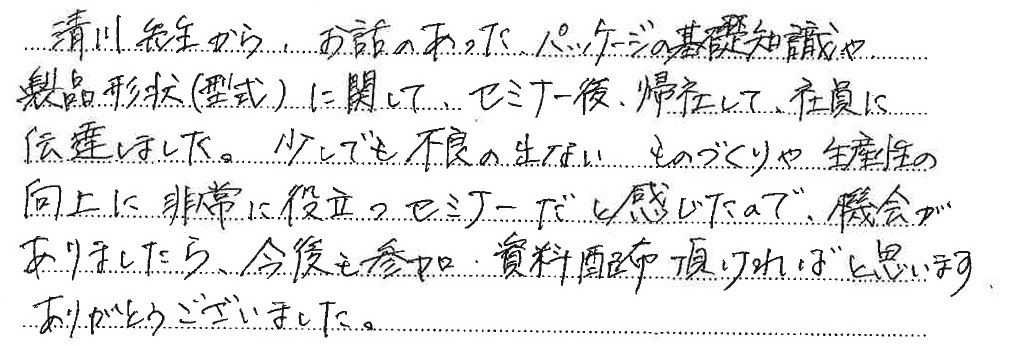 清川先生から、お話のあった、パッケージの基礎知識や
製品形状(型式)に関して、セミナー後、帰社して、社員に
伝達しました。少しでも不良の出ない ものづくりや 生産性の
向上に非常に役立つセミナーだと感じたので、機会が
ありましたら、今後も参加・資料配布頂ければと思います。
ありがとうございました。